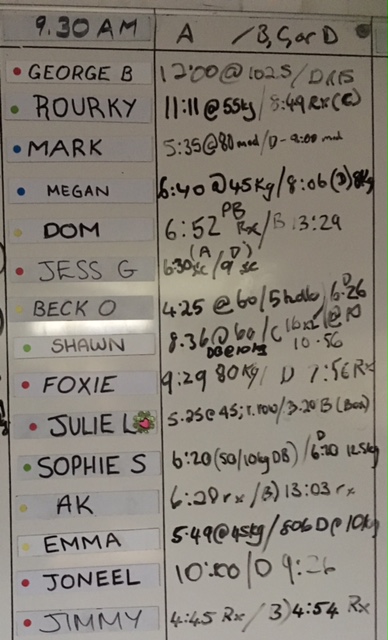 9.30 AM A / B, C, or D
GEORGE B 12:00 @ 102.5 / D
ROURKY 11:11 @ 55kg / 8:49 Rx (C)
MARK 5:35 @ 80 mod / D - 9:00 mod
MEGAN 6:40 @ 45kg / 8:06 (D) 8kg
DOM 6:52 PB Rx / B 13:29
JESS G 6:30 sc (A / 9 sc D)
BECK O 4:25 @ 60 / 5 / D 6:26
SHAWN 8.36 @ 60 / C DB @ 10kg 10.56
FOXIE 9:29 80kg / D 7:56 Rx
JULIE L 5:25 @ 45; r.row / 3:20 B (Box)
SOPHIE S 6:20 (50/10kg DB) / D 6:10 12.5kg
AK 6:20 rx / B) 13:03 rx
EMMA 5:49 @ 45kg / 806 D @ 10kg
JONEEL 10:00 / D 9:26
JIMMY 4:45 Rx / B) 4:54 Rx